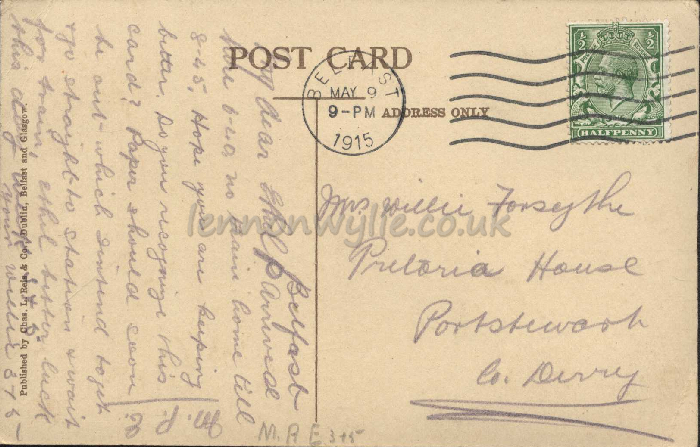 POST CARD
BELFAST
MAY 9
9-PM
1915
ADDRESS ONLY
1/2 1/2
HALFPENNY
Mrs Willie Forsythe
Pretoria House
Portstewart
Co. Derry
Belfast
My dear Ethel, arrived
here 6-40, no train home till
8-45. Hope you are keeping
better. Do you recognize this
card? Paper should soon
be out which I intend to get
& go straight to station & wait
for train, Ethel better luck
this day
your Willie
M.P.
M.A.E 3+5
Published by Chas. L. Reis & Co., Dublin, Belfast and Glasgow
lennonwylie.co.uk